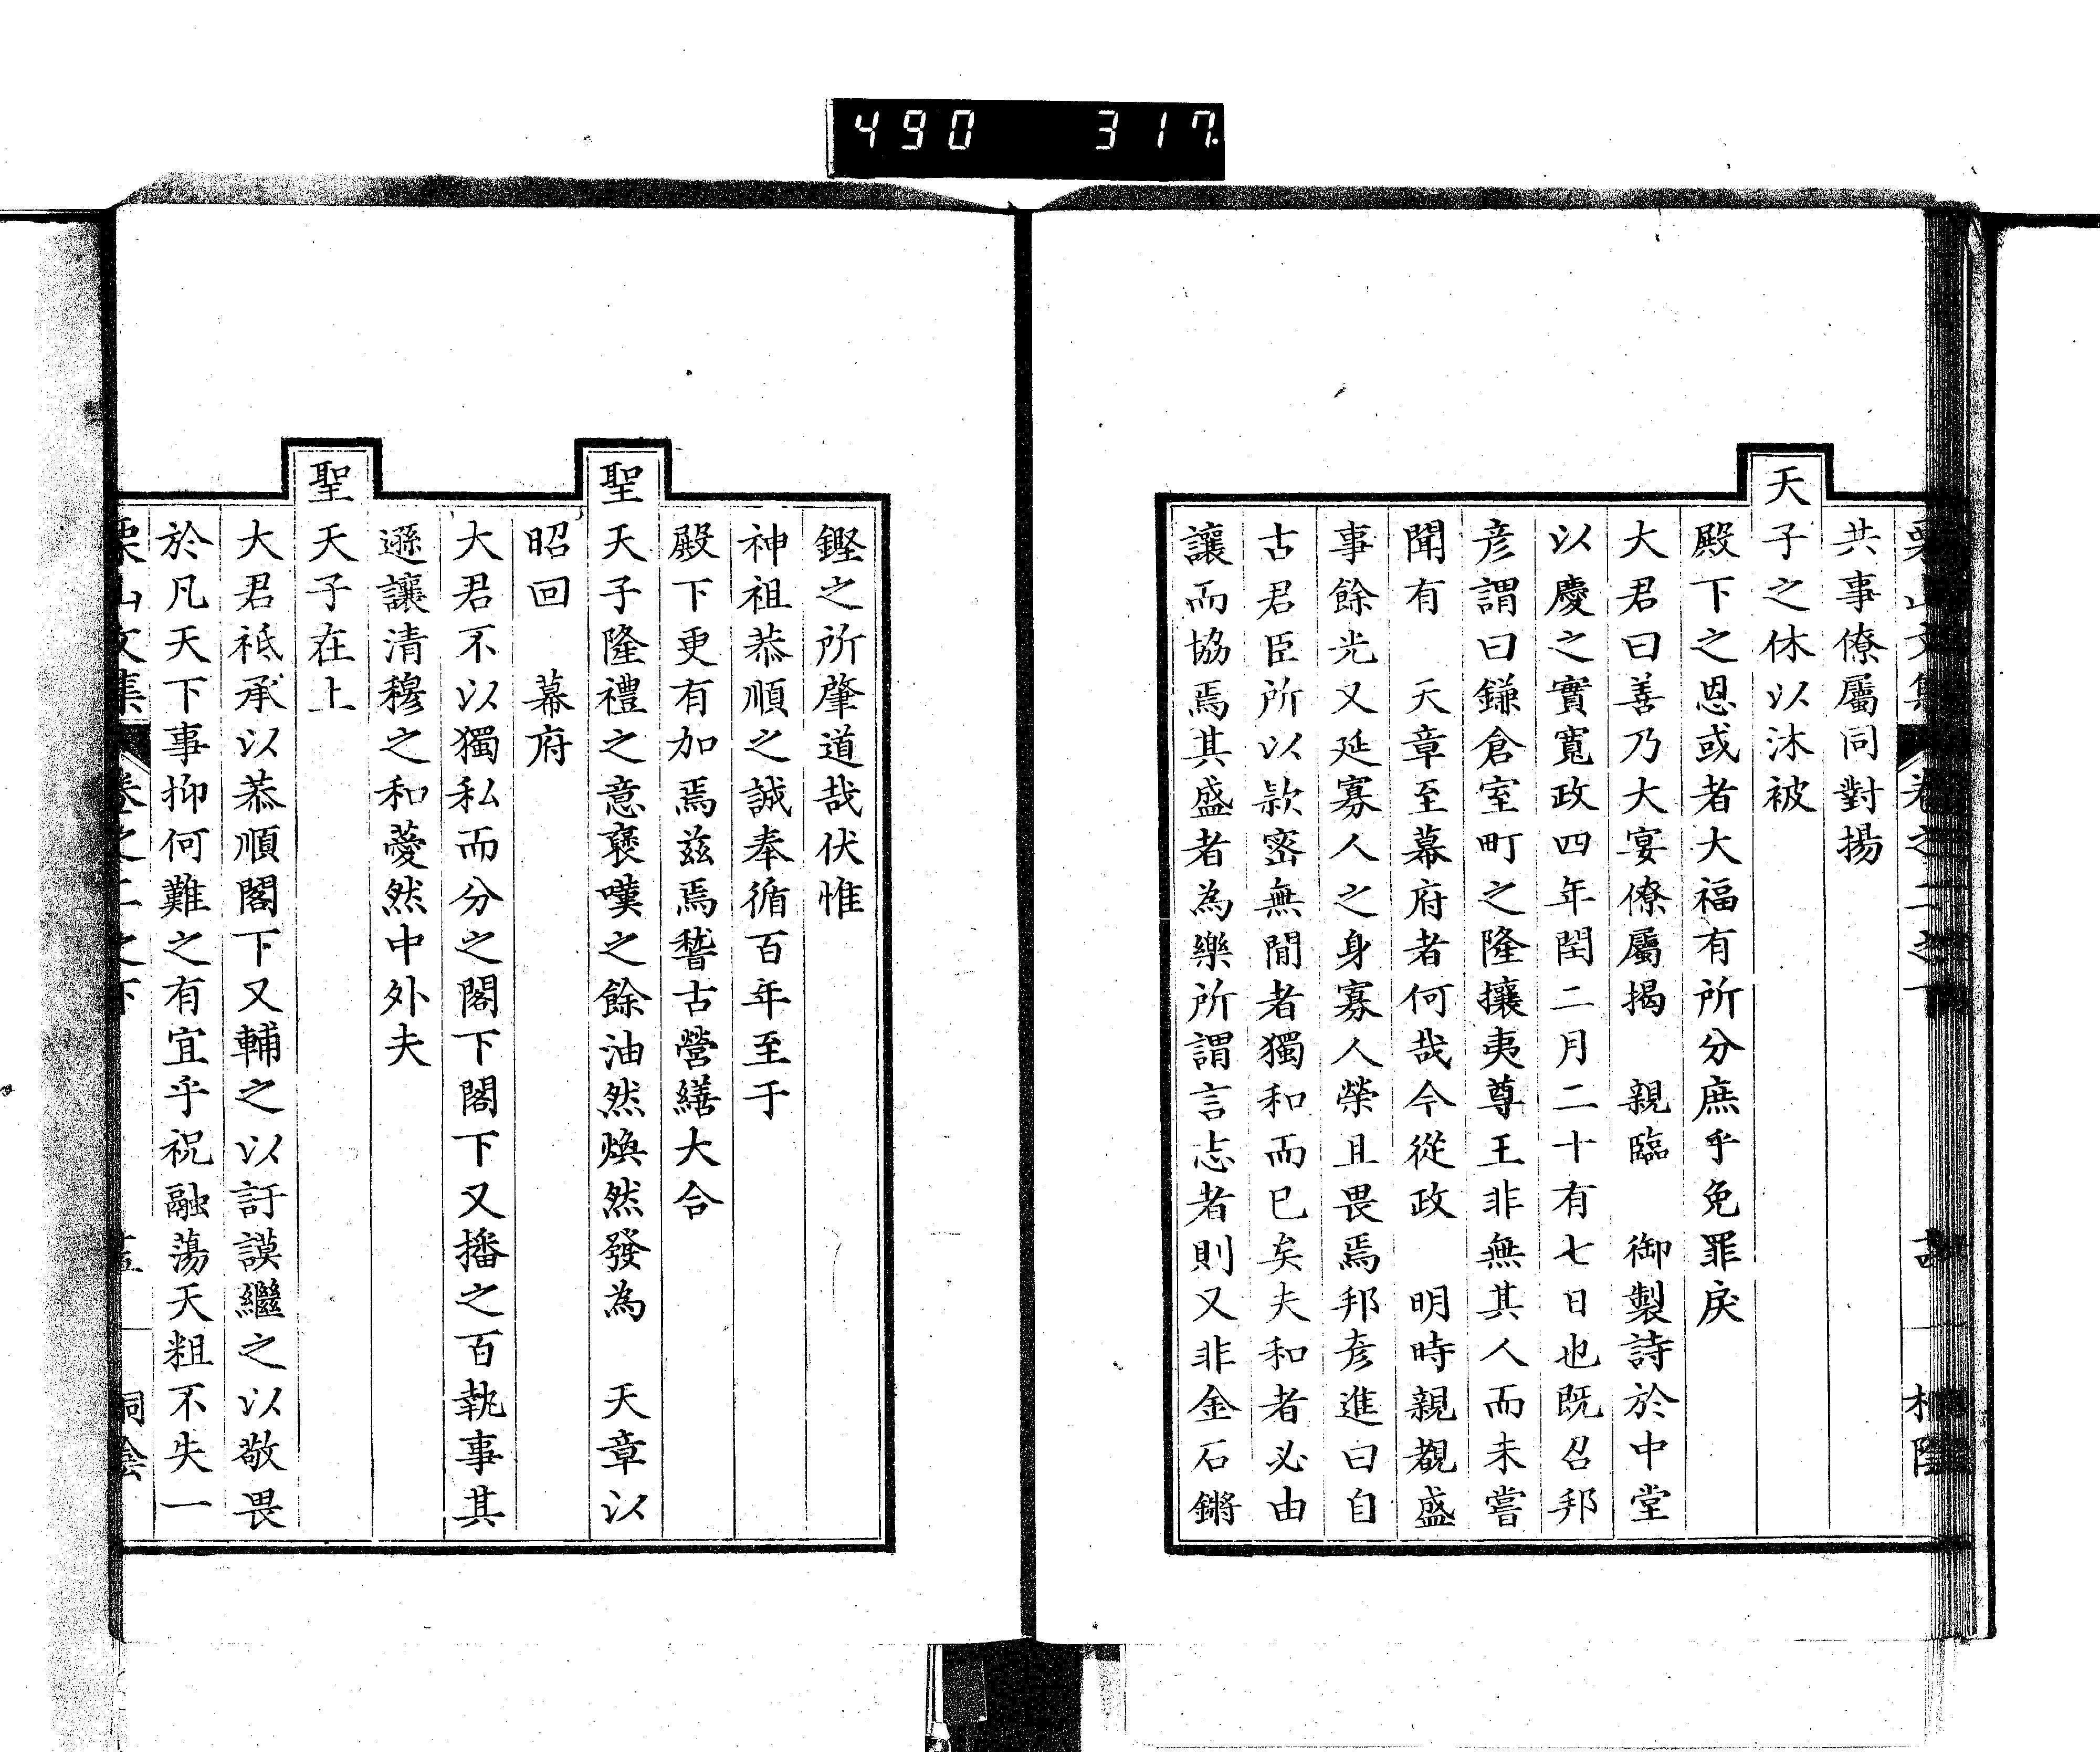 490 317
共事僚屬同對揚
天子之休以沐被
殿下之恩或者大福有所分庶乎免罪戾
大君曰善乃大宴僚屬揭　親臨　御製詩於中堂
以慶之實寬政四年閏二月二十有七日也既召邦
彦謂曰鎌倉室町之隆攘夷尊王非無其人而未嘗
聞有　天章至幕府者何哉今從政　明時親覩盛
事餘光又延寡人之身寡人榮且畏焉邦彦進曰自
古君臣所以款密無間者獨和而已矣夫和者必由
讓而協焉其盛者為樂所謂言志者則又非金石鏘
鏗之所肇道哉伏惟
神祖恭順之誠奉循百年至于
殿下更有加焉茲焉諬古營繕大合
聖天子隆禮之意褒嘆之餘油然煥然發為　天章以
昭回　幕府
大君不以獨私而分之閣下閣下又播之百執事其
遜讓清穆之和薆然中外夫
聖天子在上
大君祗承以恭順閣下又輔之以訏謨繼之以敬畏
於凡天下事抑何難之有宜乎祝融蕩天粗不失一
栗山文集　卷之二之下